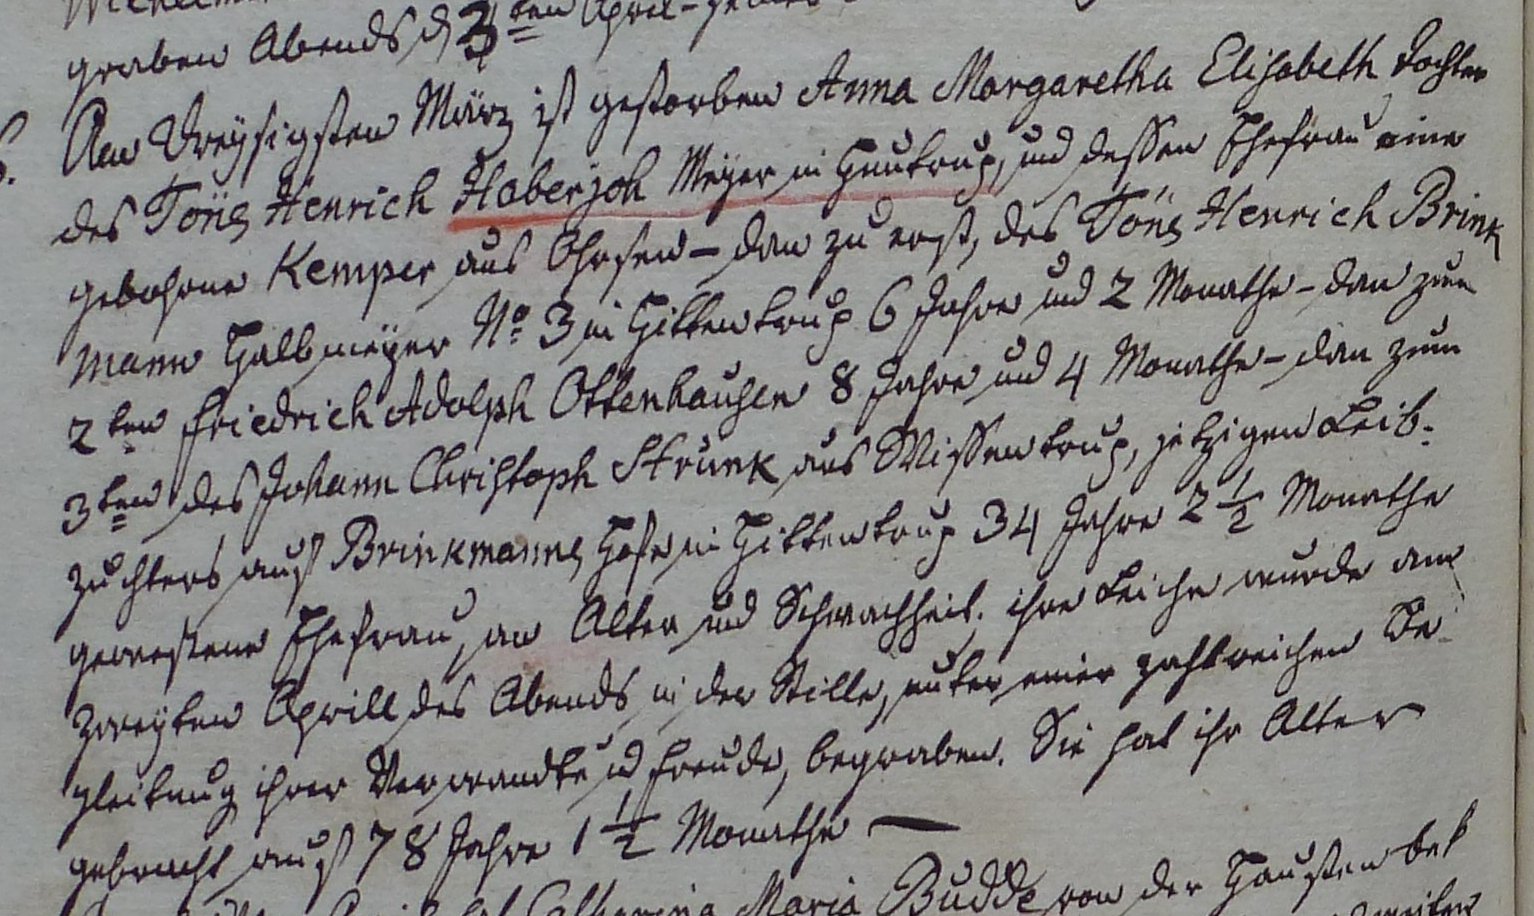 graben Abends d 3ten April
Am dreysigsten März ist gestorben Anna Margaretha Elisabeth Tochter
des Töns Henrich Haberjoh Meÿer in Huntrup, und dessen Ehefrau eine
gebohrne Kemper aus Ohrsen – dan zu erst, des Töns Henrich Brink
mann Halbmeÿer No 3 in Hittentrup 6 Jahre und 2 Monathe – dan zum
2ten Friedrich Adolph Ottenhausen 8 Jahre und 4 Monathe – dan zum
3ten des Johann Christoph Strunk aus Wissentrup, jetzigen Leib-
züchters auf Brinkmanns Hofe in Hittentrup 34 Jahre 2 1/2 Monathe
gewesene Ehefrau, an Alter und Schwachheit. ihre Leiche wurde am
zweyten Aprill des Abends in der Stille, unter einer zahlreichen Be-
gleitung ihrer Verwandte u Freude, begraben. Sie hat ihr Alter
gebracht auf 78 Jahre 1 1/2 Monathe —
Catherina Maria Budde von der